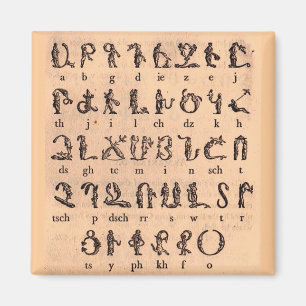 Ա Բ Գ Դ Ե Զ Է Ը
a b g d ie z e j
Թ Ժ Ի Լ Խ Ծ Կ
th j i l ch dz kh
Ձ Ղ Ճ Մ Յ Ն Շ Ո
ds gh tc m i n sch t
Չ Պ Ջ Ռ Ս Վ Տ Ր
tsch p dsch rr s w t r
Ց Ւ Փ Ք Ֆ Օ
ts y ph kh f o